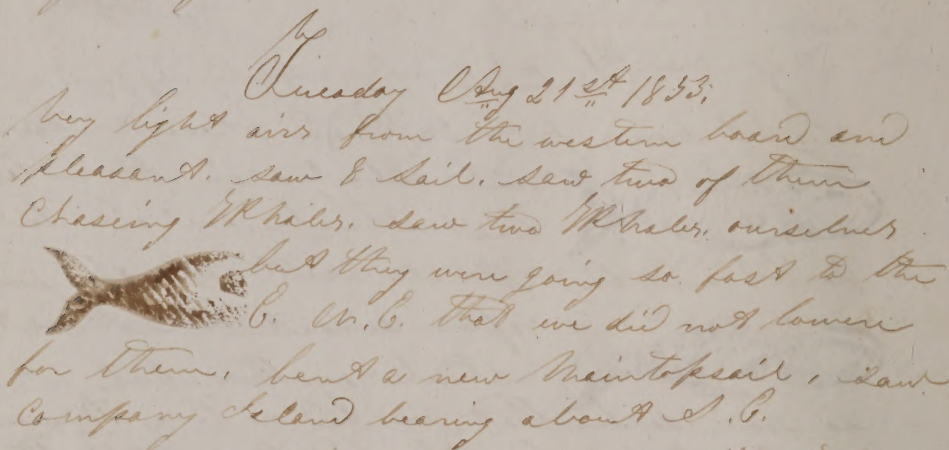 Tuesday Aug 21st 1853.
Very light airs from the western board and
pleasant. saw 8 sail. saw two of them
Chaseing Whales. saw two Whales. ourselves
but they were going so fast to the
E. N. E. that we did not lower
for them. bent a new Maintopsail, saw
Company Island bearing about S. E.